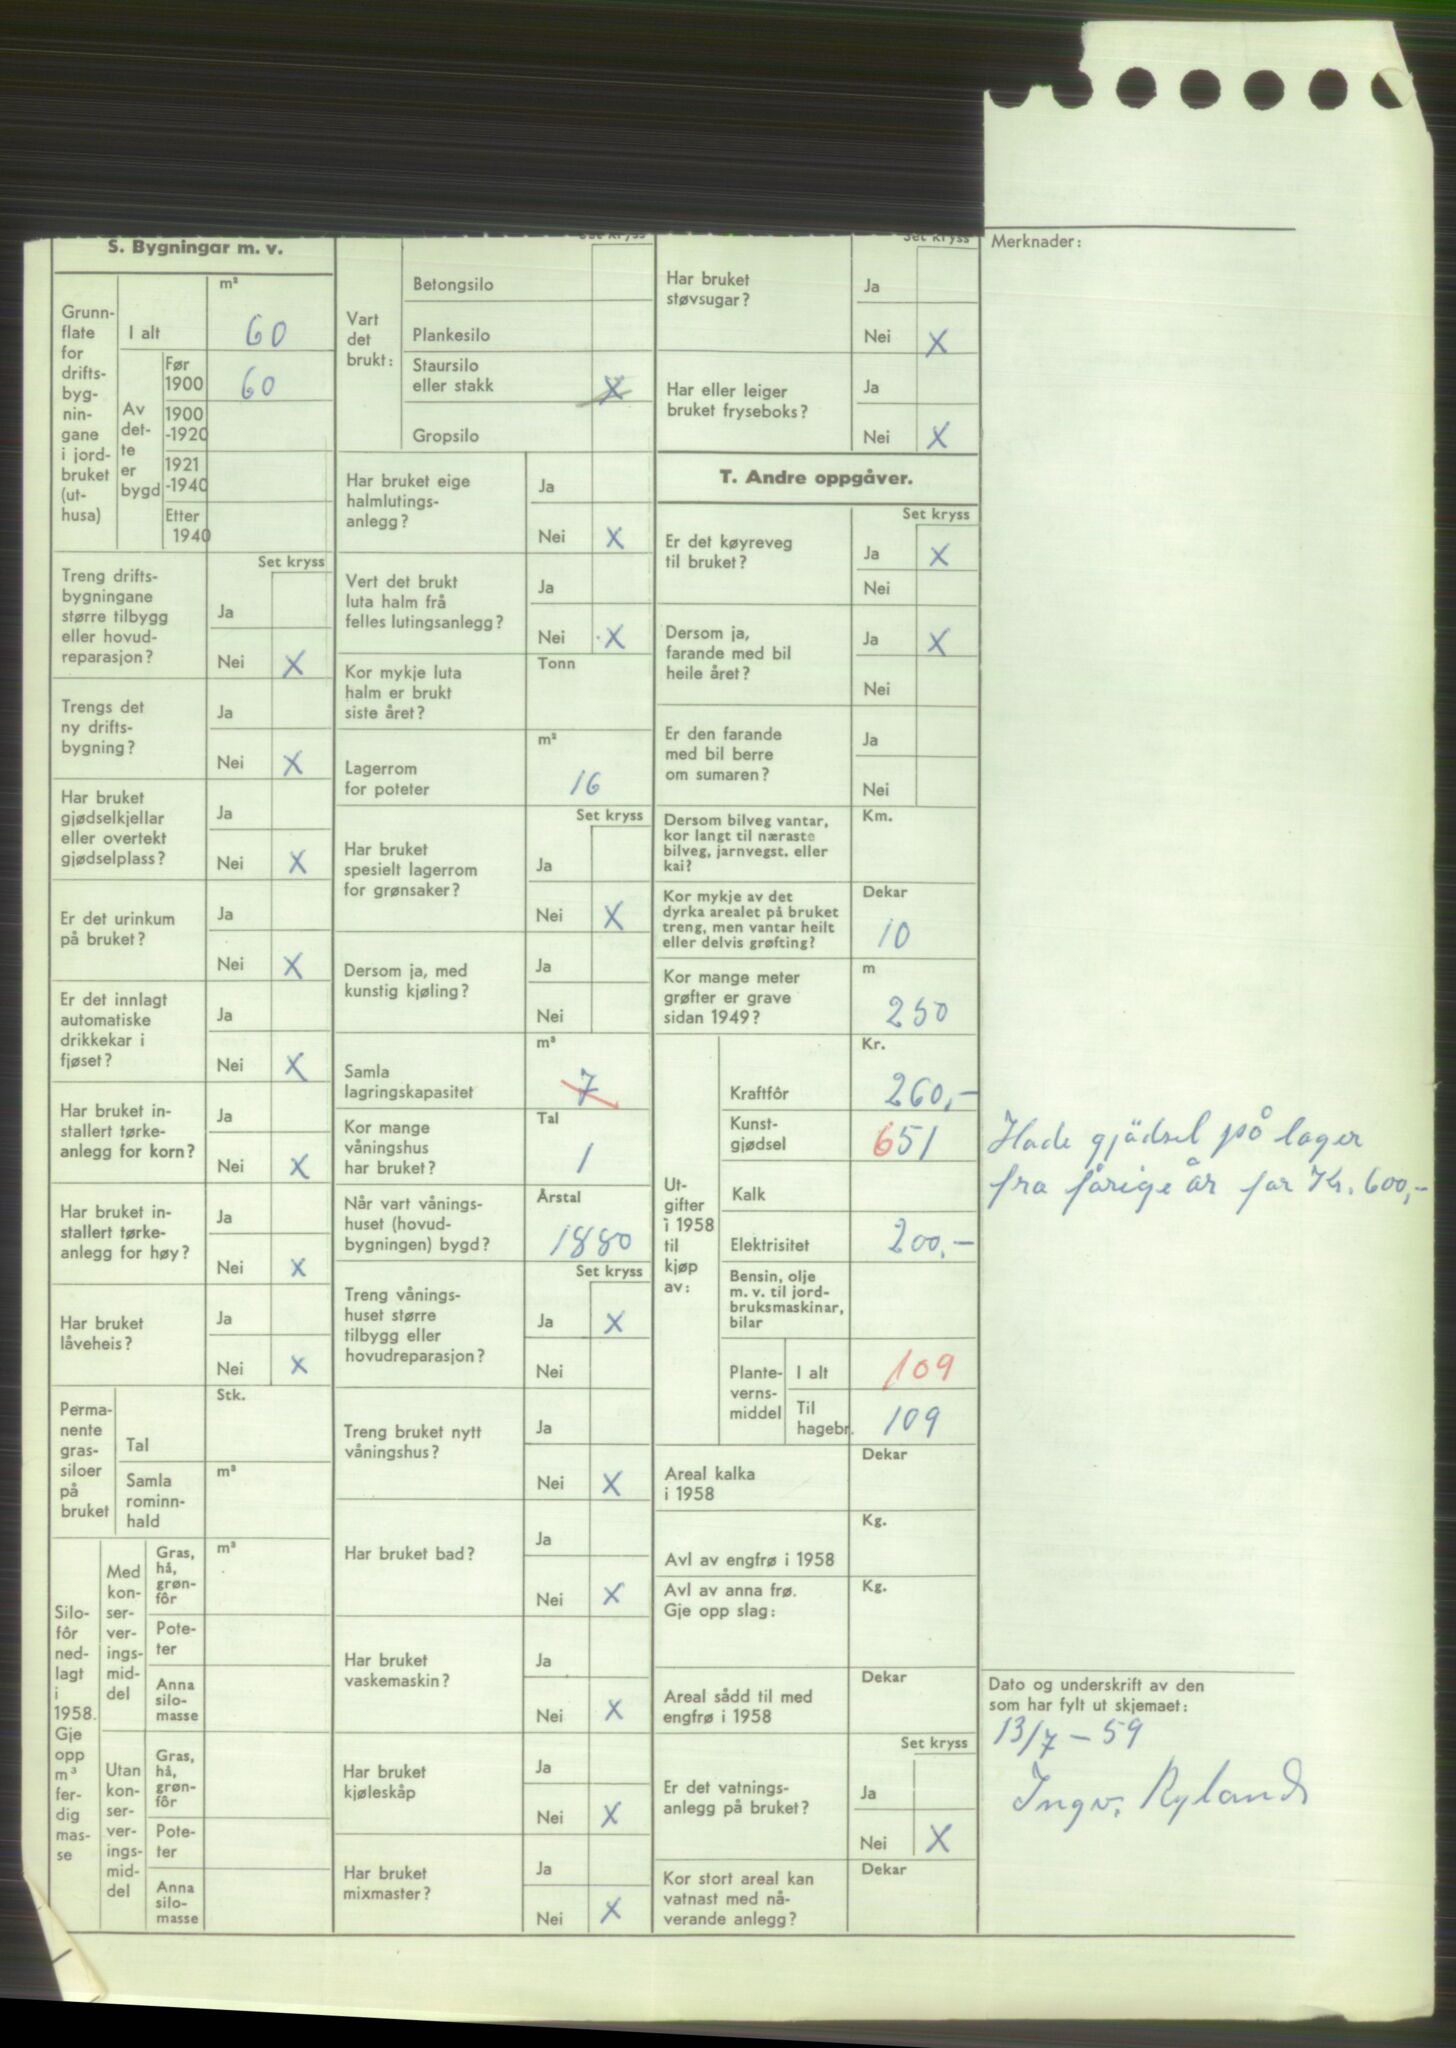 S. Bygningar m. v.
Grunn-
flate
for
drifts-
byg-
nin-
gane
i jord-
bruket
(ut-
husa)
m²
I alt
60
Av
det-
te
er
bygd
Før
1900
60
1900
-1920
1921
-1940
Etter
1940
Set kryss
Treng drifts-
bygningane
større tilbygg
eller hovud-
reparasjon?
Ja
Nei X
Trengs det
ny drifts-
bygning?
Ja
Nei X
Har bruket
gjødselkjellar
eller overtekt
gjødselplass?
Ja
Nei X
Er det urinkum
på bruket?
Ja
Nei X
Er det innlagt
automatiske
drikkekar i
fjøset?
Ja
Nei X
Har bruket in-
stallert tørke-
anlegg for korn?
Ja
Nei X
Har bruket in-
stallert tørke-
anlegg for høy?
Ja
Nei X
Har bruket
låveheis?
Ja
Nei X
Perma-
nente
gras-
siloer
på
bruket
Stk.
Tal
Samla
rominn-
hald
m³
Silo-
fôr
ned-
lagt
i
1958.
Gje
opp
m³
fer-
dig
mas-
se
Med
kon-
ser-
ver-
ings-
mid-
del
Gras,
hå,
grøn-
fôr
m³
Pote-
ter
Anna
silo-
masse
Utan
kon-
ser-
ver-
ings-
mid-
del
Gras,
hå,
grøn-
fôr
Pote-
ter
Anna
silo-
masse
Set kryss
Vart
det
brukt:
Betongsilo
Plankesilo
Staursilo
eller stakk X
Gropsilo
Har bruket eige
halmlutings-
anlegg?
Ja
Nei X
Vert det brukt
luta halm frå
felles lutingsanlegg?
Ja
Nei X
Kor mykje luta
halm er brukt
siste året?
Tonn
Lagerrom
for poteter
m³
16
Set kryss
Har bruket
spesielt lagerrom
for grønsaker?
Ja
Nei X
Dersom ja, med
kunstig kjøling?
Ja
Nei
Samla
lagringskapasitet
m³
7
Kor mange
våningshus
har bruket?
Tal
1
Når vart vånings-
huset (hovud-
bygningen) bygd?
Årstal
1880
Set kryss
Treng vånings-
huset større
tilbygg eller
hovudreparasjon?
Ja X
Nei
Treng bruket nytt
våningshus?
Ja
Nei X
Har bruket bad?
Ja
Nei X
Har bruket
vaskemaskin?
Ja
Nei X
Har bruket
kjøleskåp
Ja
Nei X
Har bruket
mixmaster?
Ja
Nei X
Set kryss
Har bruket
støvsugar?
Ja
Nei X
Har eller leiger
bruket fryseboks?
Ja
Nei X
T. Andre oppgåver.
Set kryss
Er det køyreveg
til bruket?
Ja X
Nei
Dersom ja,
farande med bil
heile året?
Ja X
Nei
Er den farande
med bil berre
om sumaren?
Ja
Nei
Dersom bilveg vantar,
kor langt til næraste
bilveg, jarnvegst. eller
kai?
Km.
Kor mykje av det
dyrka arealet på bruket
treng, men vantar heilt
eller delvis grøfting?
Dekar
10
Kor mange meter
grøfter er grave
sidan 1949?
m
250
Ut-
gifter
i 1958
til
kjøp
av:
Kr.
Kraftfôr
260,-
Kunst-
gjødsel
651
Kalk
Elektrisitet
200,-
Bensin, olje
m. v. til jord-
bruksmaskinar,
bilar
Plante-
verns-
middel
I alt
109
Til
hagebr.
109
Areal kalka
i 1958
Dekar
Avl av engfrø i 1958
Kg.
Avl av anna frø.
Gje opp slag:
Kg.
Areal sådd til med
engfrø i 1958
Dekar
Set kryss
Er det vatnings-
anlegg på bruket?
Ja
Nei X
Kor stort areal kan
vatnast med nå-
verande anlegg?
Dekar
Merknader:
Hade gjödsel på lager
fra förige år for Kr. 600,-
Dato og underskrift av den
som har fylt ut skjemaet:
13/7 - 59
Ingv. Ryland